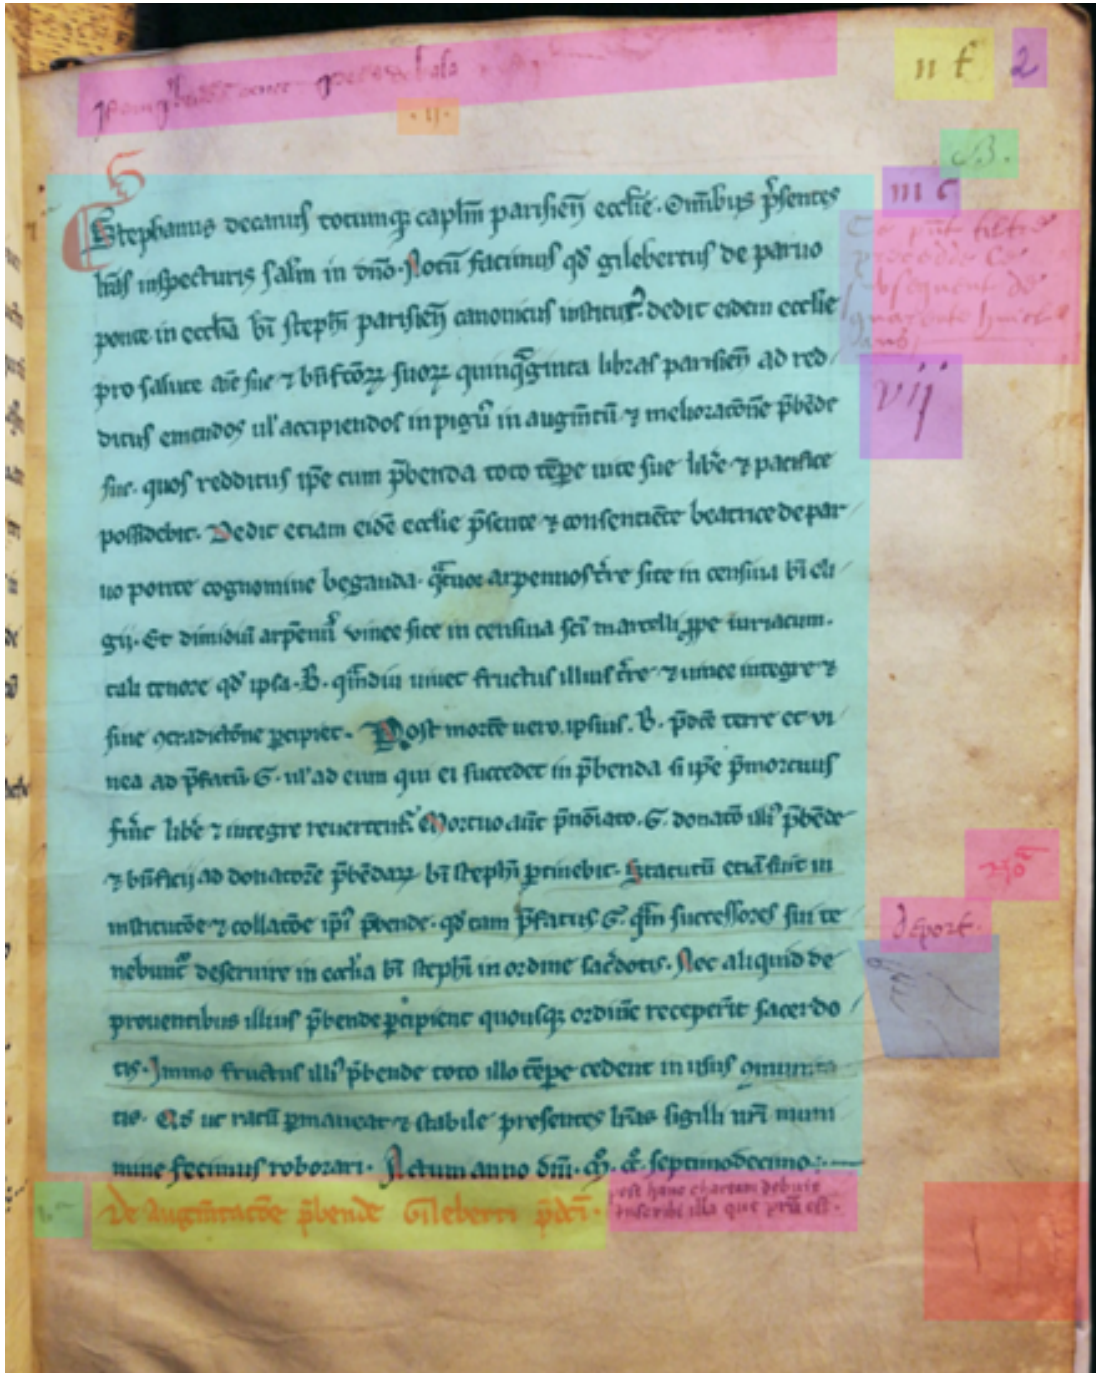 n t 2
.ij.
B.
m c
Stephanus decanus totumq; capl̄m parisien̄ eccl̄ie. Om̄ibus p̄sentes
l̄ras inspecturis sal̄m in dn̄o. Notū facimus qd̄ gilebertus de paruo
ponte in eccl̄ia bī steph̄i parisien̄ canonicus institut᷒. dedit eidem eccl̄ie
pro salute aīe sue ⁊ bn̄fc̄oꝝ suoꝝ quinq̄ginta libras parisien̄ ad red
ditus emendos ul' accipiendos in pigń in augm̄tū ⁊ melioratōnē p̄bēde
sue. quos redditus ip̄e cum p̄benda toto tēpe uite sue lib̄e ⁊ pacifice
possidebit. Dedit etiam eidē eccl̄ie p̄sente ⁊ consentiēte beatrice de par
uo ponte cognomine beganda. q̄tuor arpennos t̄re site in censiua bī eli
gij. Et dimidiū arpēnū vinee site in censiua sc̄i marcelli ꝓpe iuriacum.
tali tenore qd̄ ipsa. B. q̄mdiu uiuet fructus illius t̄re ⁊ uinee integre ⁊
sine ꝯtradictōne ꝑcipiet. Post mortē uero ipsius. B. p̄dc̄e terre et vi
nea ad p̄fatū G. ul' ad eum qui ei succedet in p̄benda si ip̄e p̄mortuus
fūit lib̄e ⁊ integre reuertent᷒. Mortuo aūt p̄nōiato. G. donatō illi᷒ p̄bēde
⁊ bn̄ficij ad donatorē p̄bēdaꝝ bī steph̄i ꝑtinebit. Statutū etiā fuit in
institutōe ⁊ collatōe ip̄i᷒ p̄bende. qd̄ tam p̄fatus G. q̄m successores sui te
nebunt᷒ deseruire in eccl̄ia bī steph̄i in ordine sac̄dotis. Nec aliquid de
prouentibus illius p̄bende ꝑcipient quousq; ordinē recepīt sacerdo
tis. Immo fructus illi᷒ p̄bende toto illo tēpe cedent in usus ꝯmunita
tis. Qd̄ ut ratū ꝑmaneat ⁊ stabile presentes l̄ras sigilli nr̄i muni
mine fecimus roborari. Actum anno dn̄i. M̊. cc̊. septimodecimo.
vij
deport.
De Augm̄tatōe p̄bende Gileberti p̄dc̄i.
post hanc chartam debuit
inscribi illa que